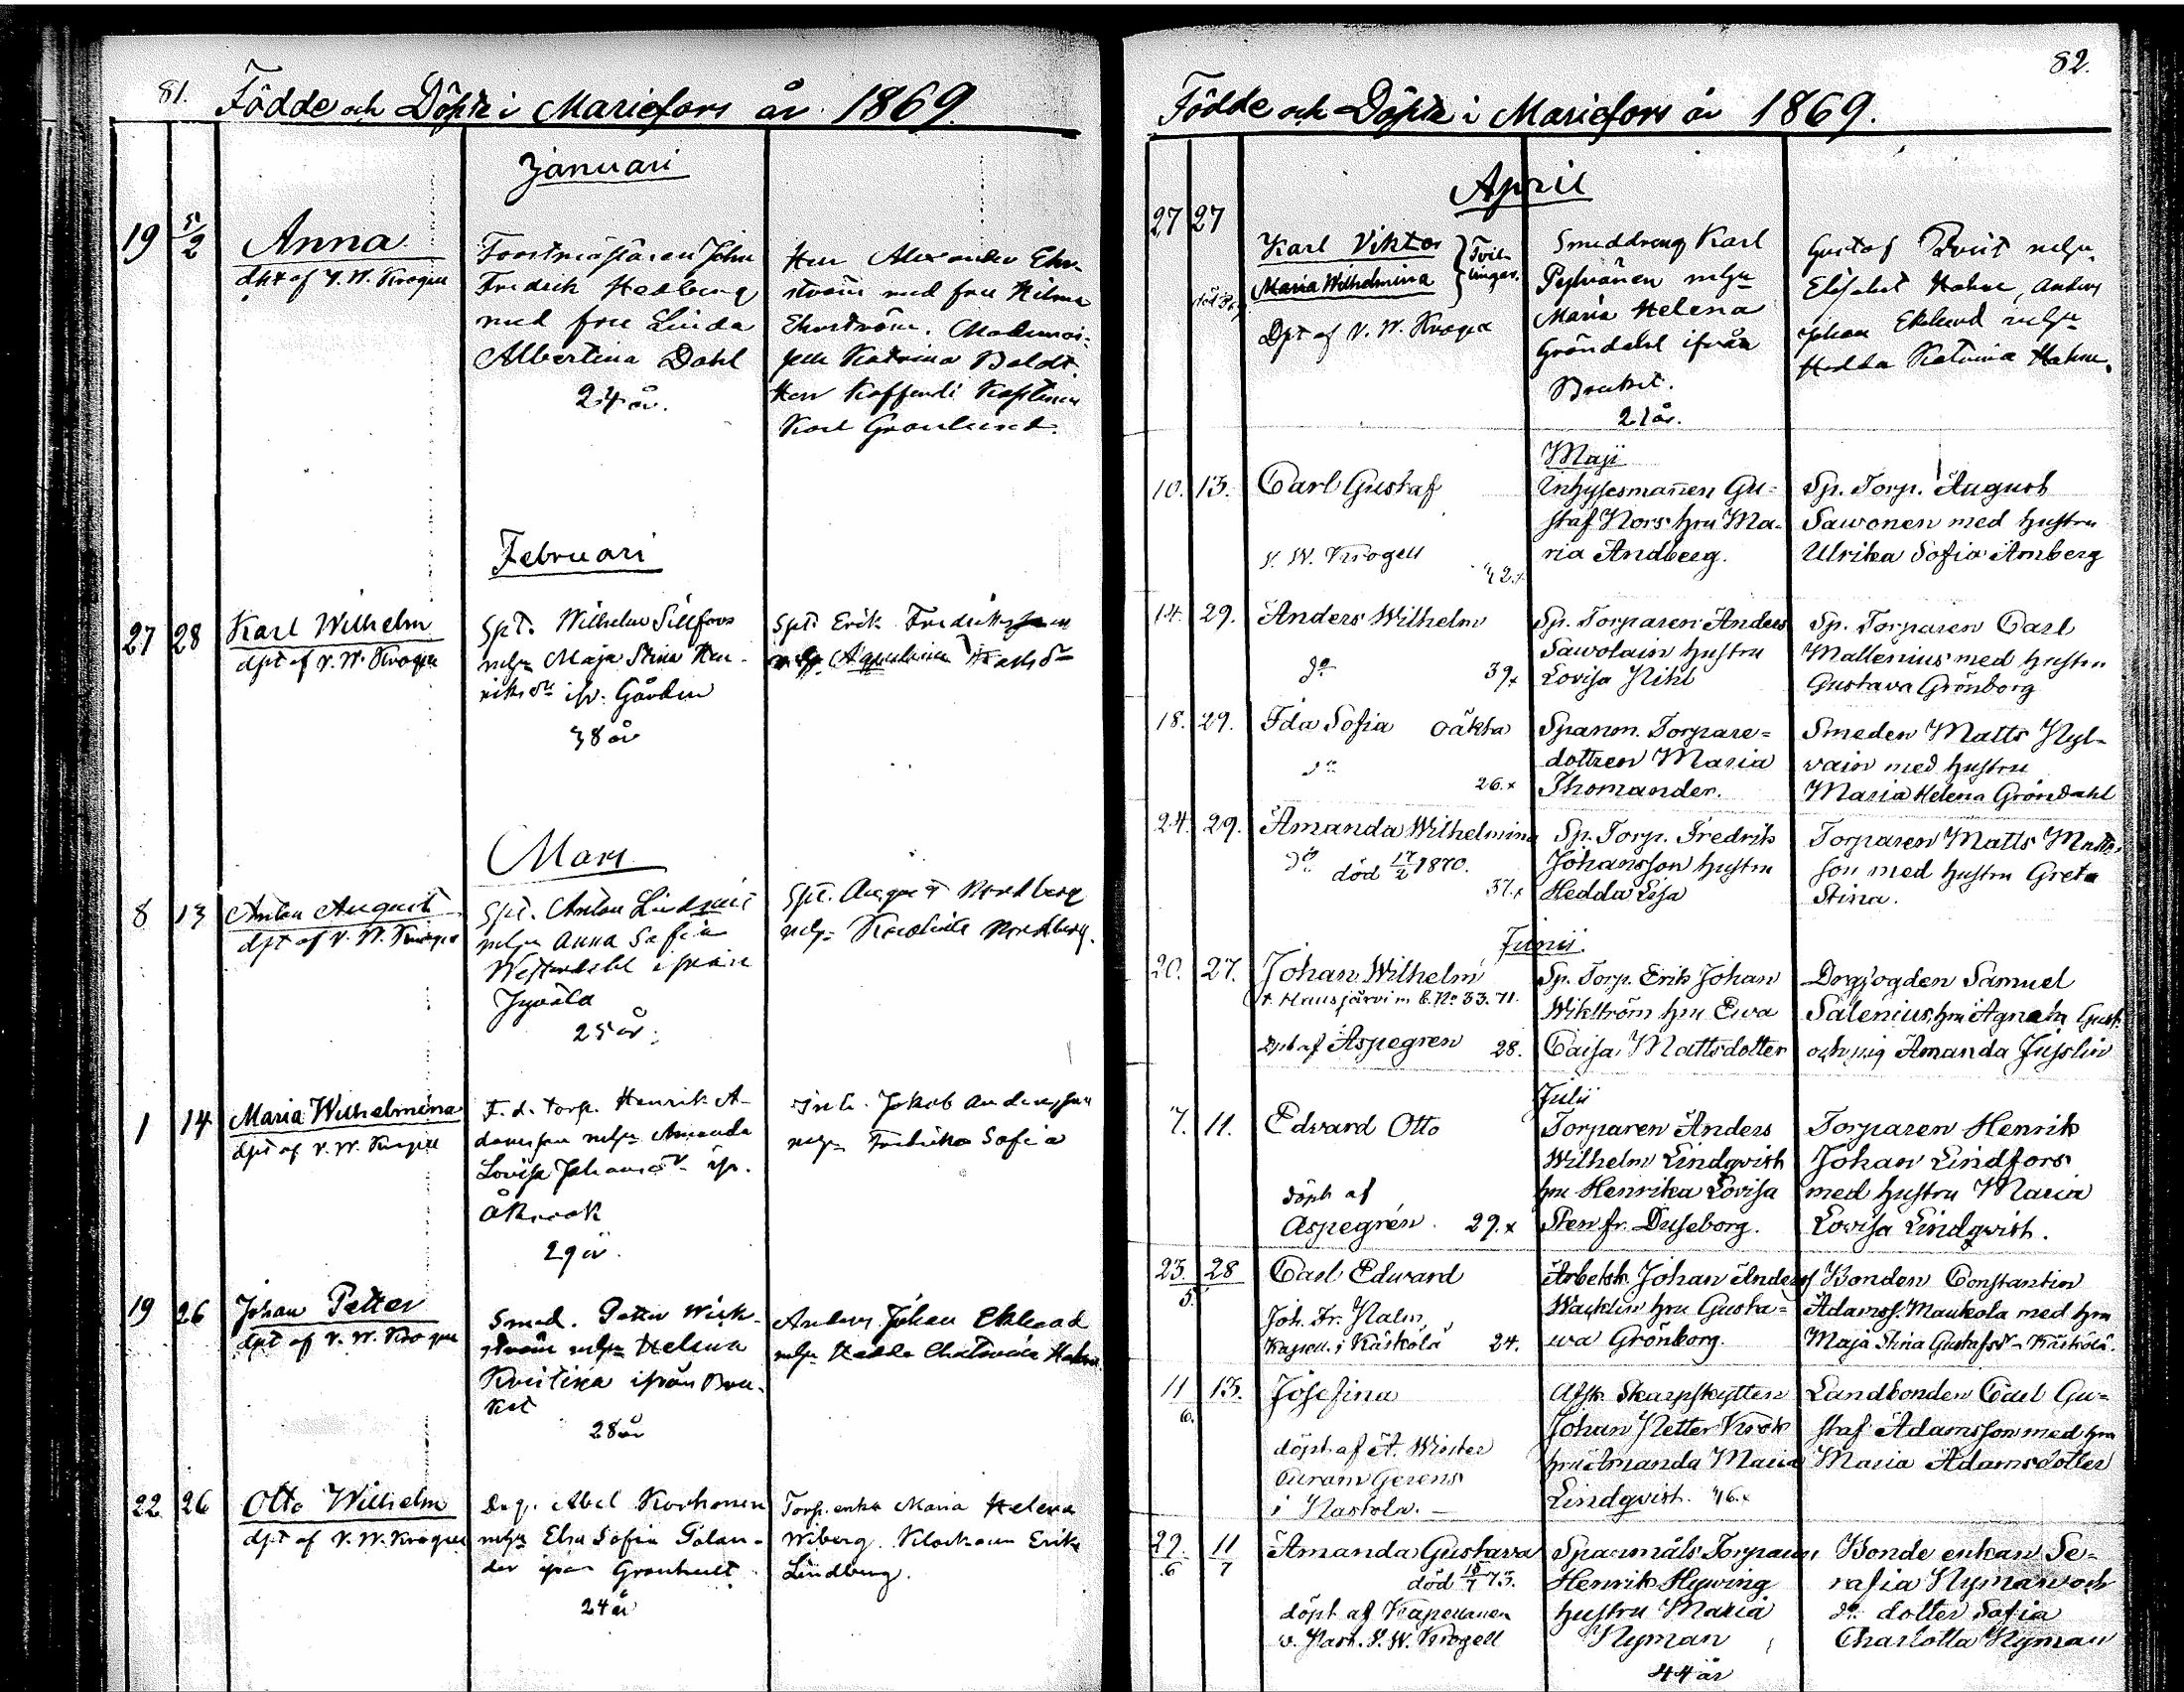 81.
Födde och Döpte i Mariefors år 1869.
Januari
19 5/2 Anna
dpt af V. W. Krogell
Forstmästaren John
Fredrik Hedberg
med fru Linda
Albertina Dahl
24 år.
Herr Alexander Ehr-
ström med fru Hilma
Ehrström. Mademoi-
sell Katrina Boldt.
Herr Kofferdi Kapten
Karl Granlund.
Februari
27 28 Karl Wilhelm
dpt af V. W. Krogell
Spt. Wilhelm Sillfors
Maja Stina Hen-
ifr. Gården
38 år
Spt. Erik
Mars
8 13 Anton August
dpt af V. W. Krogell
Spt. Anton Lindqvist
Anna Sofia
Westerdahl ifrån
25 år.
Spt. August Nordberg
Karolina Nordberg.
1 14 Maria Wilhelmina
dpt af V. W. Krogell
F. d. Torp. Henrik A-
Amanda
Lovisa ifr.
29 år.
Inh. Jakob Andersson
Fredrika Sofia
19 26 Johan Petter
dpt af V. W. Krogell
Smed. Petter Wick-
ström Helena
Kristina ifrån Bru-
ket
28 år
Anders Johan Eklund
Hedda
22 26 Otto Wilhelm
dpt af V. W. Krogell
Drg. Abel Korhonen
Elsa Sofia Solan-
der ifrån
24 år
Torp. enka Maria Helena
Wiberg. Klockaren Erik
Lindberg.
82.
Födde och Döpte i Mariefors år 1869.
April
27 27 Karl Viktor
Maria Wilhelmina
Tvil-
lingar.
Dpt af V. W. Krogell
Smeddreng Karl
Maria Helena
Gröndahl ifrån
Bruket.
21 år.
Gustaf
Elisabet Hahne, Anders
Johan Eklund
Hedda Katrina Hahne.
Maji
10. 13. Carl Gustaf
V. W. Krogell
Inhysesmannen Gu-
staf Nors hru Ma-
ria Andberg.
Sp. Torp. August
Sawonen med hustru
Ulrika Sofia
14. 29. Anders Wilhelm
do 39.x
Sp. Torparen Anders
Sawolain hustru
Lovisa Pihl
Sp. Torparen Carl
Mallenius med hustru
Gustava Grönborg
18. 29. Ida Sofia oäkta
do 26.x
Spanm. Torpare-
dottren Maria
Thomander.
Smeden Matts Pyl-
vain med hustru
Maria Helena Gröndahl
24. 29. Amanda Wilhelmina
do död 17/2 1870.
37.x
Sp. Torp. Fredrik
Johansson hustru
Hedda Lisa
Torparen Matts Matts-
son med hustru Greta
Stina.
Junii.
20. 27. Johan Wilhelm
t. Hausjärvi m. b. No 33. 71.
Dpt af Aspegren 28.
Sp. Torp. Erik Johan
Wikström hru Ewa
Caisa Mattsdotter
Samuel
Salenius, hru Agneta Gust.
och pig Amanda Jusslin
Julii
7. 11. Edvard Otto
döpt af
Aspegrén. 29.x
Torparen Anders
Wilhelm Lindqvist
hru Henrika Lovisa
Sten fr. Duseborg.
Torparen Henrik
Johan Lindfors
med hustru Maria
Lovisa Lindqvist.
23./5. 28 Carl Edward
Joh. Fr. Malm,
Kapell. i Kärkölä 24.
Arbetsk. Johan Anders
Wacklin hru Gusta-
va Grönborg.
Bonden Constantin
Adamss. Maukola med hru
Maja Stina Gustafsdr - Kärkölä.
11/6. 13. Josefina
döpt af A. Winter
i Nastola. —
Afsk. Skarpskytten
Johan Petter Krok
hru Amanda Maria
Lindqvist. 46.x
Landbonden Carl Gu-
staf Adamsson med hru
Maria Adamsdotter
29./6 11/7 Amanda Gustava
död 18/7 73.
döpt af Kapellanen
v. Past. V. W. Krogell
Spanmåls Torparen
Henrik Hywing
hustru Maria
Nyman
44 år
Bonde enkan Se-
rafia Nyman och
do dotter Sofia
Charlotta Nyman